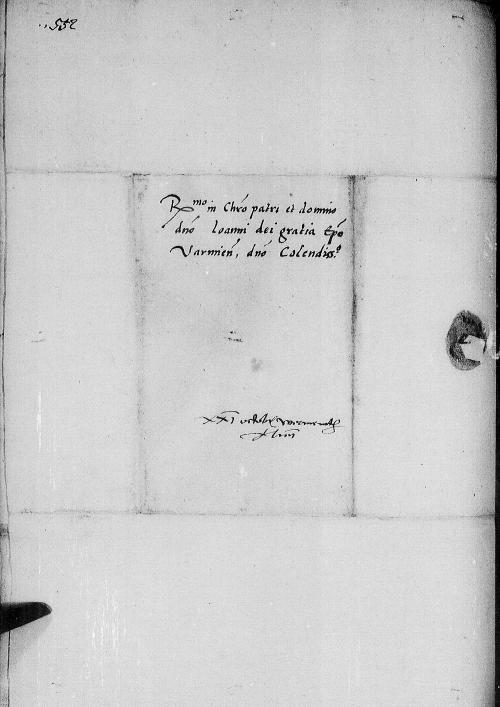 552
R^mo in Chro patri et domino
dno Ioanni dei gratia Epo
Varmien, dno Colendiss.o
XXI octobr